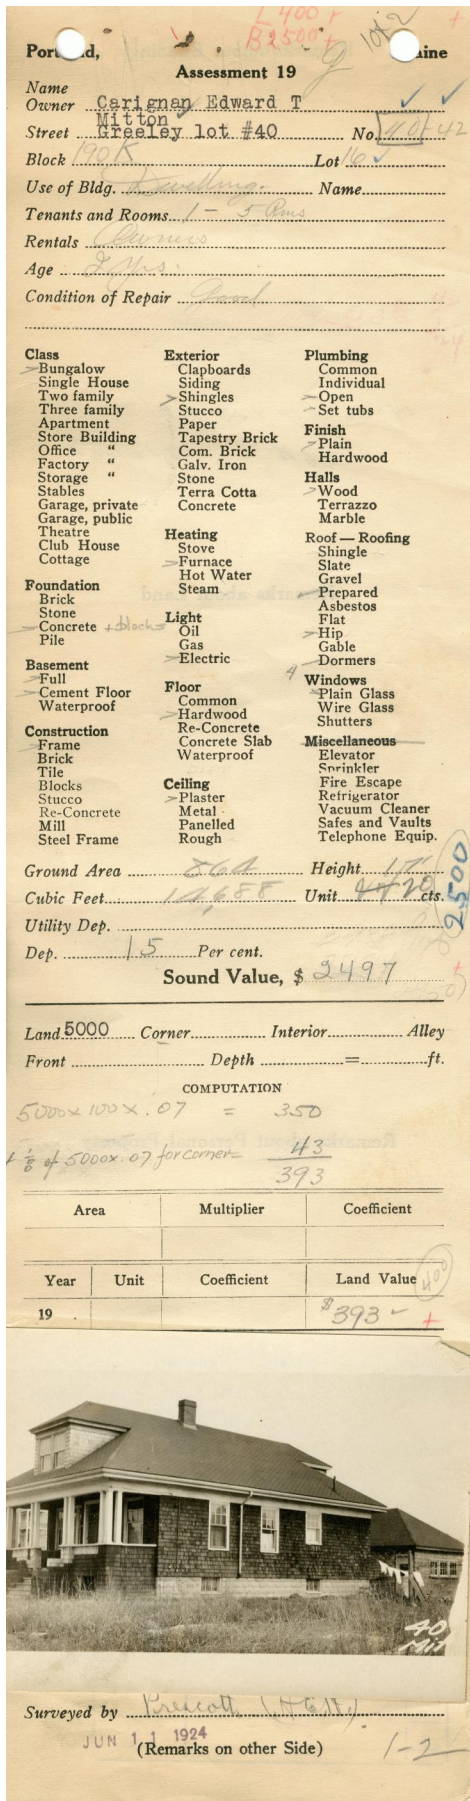 L 400 +
B 2500 +
Portland, Maine
Assessment 19
Name
Owner Carignan Edward T
Mitton
Street Greeley lot #40 No. 40-42
Block 190K Lot 16
Use of Bldg. Dwelling. Name
Tenants and Rooms 1 - 5 Rms
Rentals Owners
Age 2 Yrs.
Condition of Repair Good
Class
Bungalow
Single House
Two family
Three family
Apartment
Store Building
Office "
Factory "
Storage "
Stables
Garage, private
Garage, public
Theatre
Club House
Cottage
Foundation
Brick
Stone
Concrete + blocks
Pile
Basement
Full
Cement Floor
Waterproof
Construction
Frame
Brick
Tile
Blocks
Stucco
Re-Concrete
Mill
Steel Frame
Exterior
Clapboards
Siding
Shingles
Stucco
Paper
Tapestry Brick
Com. Brick
Galv. Iron
Stone
Terra Cotta
Concrete
Heating
Stove
Furnace
Hot Water
Steam
Light
Oil
Gas
Electric
Floor
Common
Hardwood
Re-Concrete
Concrete Slab
Waterproof
Ceiling
Plaster
Metal
Panelled
Rough
Plumbing
Common
Individual
Open
Set tubs
Finish
Plain
Hardwood
Halls
Wood
Terrazzo
Marble
Roof — Roofing
Shingle
Slate
Gravel
Prepared
Asbestos
Flat
Hip
Gable
4 Dormers
Windows
Plain Glass
Wire Glass
Shutters
Miscellaneous
Elevator
Sprinkler
Fire Escape
Refrigerator
Vacuum Cleaner
Safes and Vaults
Telephone Equip.
Ground Area 864 Height 17'
Cubic Feet 14,688 Unit 20 cts.
2500
Utility Dep.
Dep. 15 Per cent.
Sound Value, $ 2497
Land 5000 Corner Interior Alley
Front Depth = ft.
COMPUTATION
5000 x 100 x .07 = 350
of 5000 x .07 for corner = 43
393
Area Multiplier Coefficient
Year Unit Coefficient Land Value 400
19 $393
40
Mit
Surveyed by Prescott
JUN 11 1924
(Remarks on other Side) 1-2